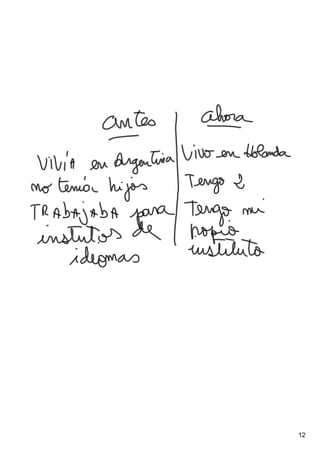 antes ahora
Vivía en Argentina Vivo en Holanda
no tenía hijos Tengo 2
TRAbAjAbA para Tengo mi
institutos de propio
idiomas instituto
12